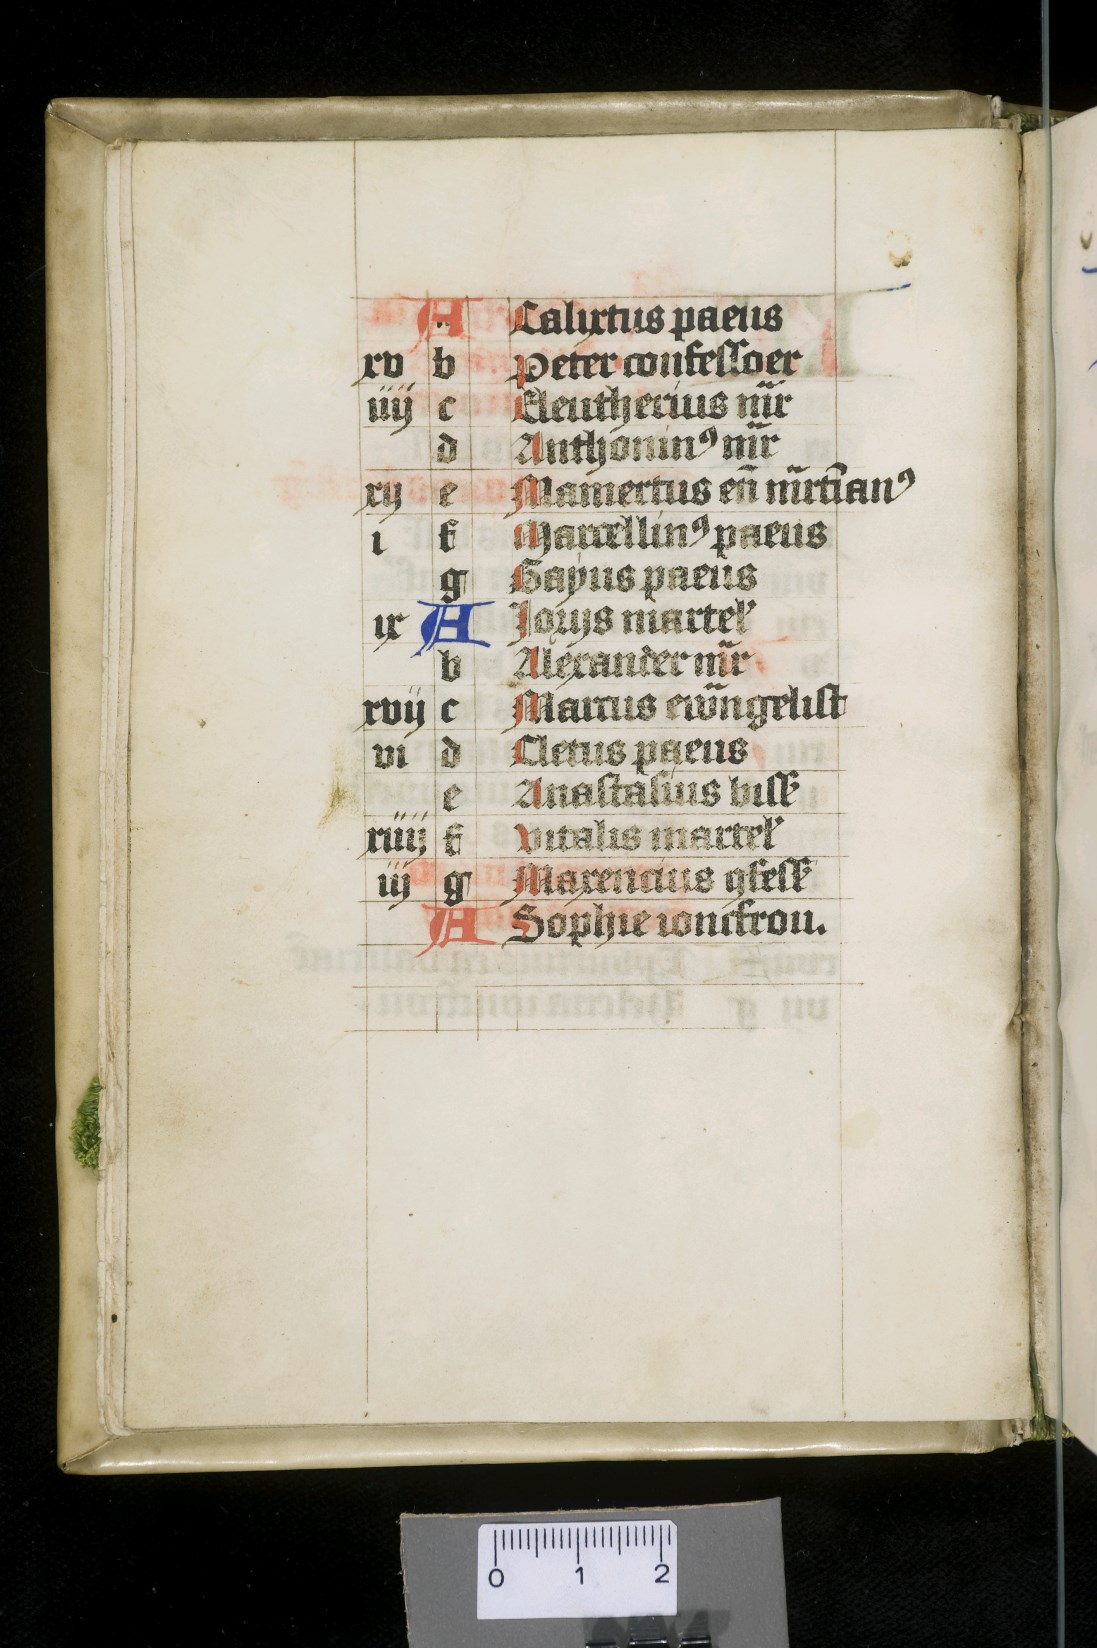 A Calixtus paeus
xv b Peter confessoer
iiij c Eleutherius mr̄r
d Anthoninꝰ mr̄r
xij e Mamertus en̄ mr̄tianꝰ
i f Marcellinꝰ paeus
g Gayus paeus
ix A Jorijs martel'
b Alexander mr̄r
xvij c Marcus ewāngelist
vi d Cletus paeus
e Anastasius bissc̄
xiiij f Vitalis martel'
iij g Maxencius ꝯfess̄
A Sophie ioncfrou.
0 1 2